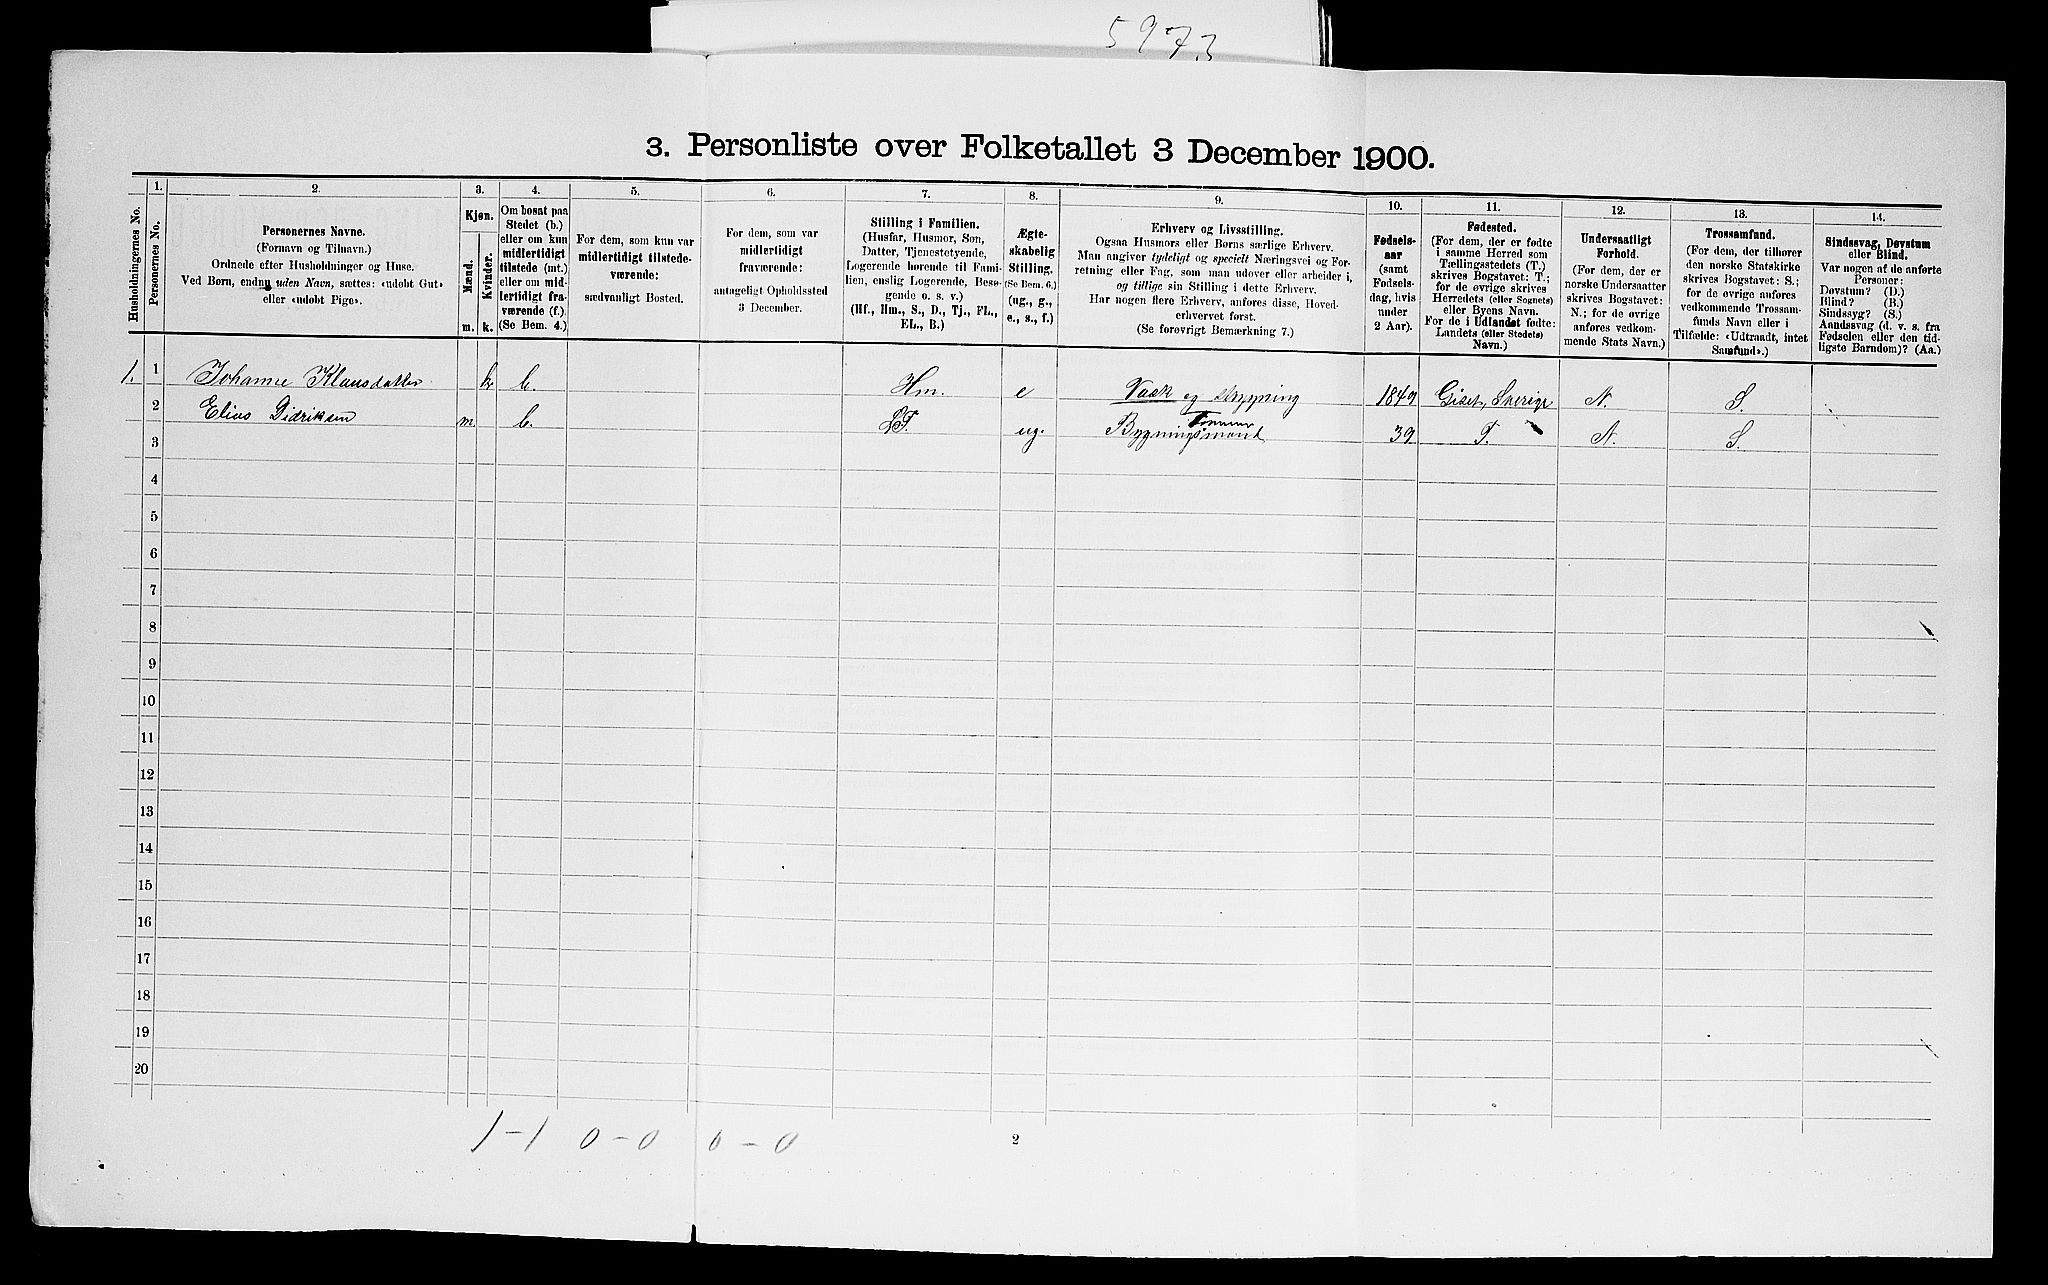 5973
3. Personliste over Folketallet 3 December 1900.
Husholdningernes No.
1.
Personernes No.
2.
Personernes Navne.
(Fornavn og Tilnavn.)
Ordnede efter Husholdninger og Huse.
Ved Børn, endnu uden Navn, sættes: «udobt Gut»
eller «udobt Pige».
3.
Kjøn.
Mænd.
Kvinder.
m.
k.
4.
Om bosat paa
Stedet (b.)
eller om kun
midlertidigt
tilstede (mt.)
eller om mid-
lertidigt fra-
værende (f.)
(Se Bem. 4.)
5.
For dem, som kun var
midlertidigt tilstede-
værende:
sædvanligt Bosted.
6.
For dem, som var
midlertidigt
fraværende:
antageligt Opholdssted
3 December.
7.
Stilling i Familien.
(Husfar, Husmor, Søn,
Datter, Tjenestetyende,
Logerende hørende til Fami-
lien, enslig Logerende, Besø-
gende o. s. v.)
(Hf., Hm., S., D., Tj., FL.,
EL., B.)
8.
Ægte-
skabelig
Stilling.
(Se Bem. 6.)
(ug., g.,
e., s., f.)
9.
Erhverv og Livsstilling.
Ogsaa Husmors eller Børns særlige Erhverv.
Man angiver tydeligt og specielt Næringsvei og For-
retning eller Fag, som man udover eller arbeider i,
og tillige sin Stilling i dette Erhverv.
Har nogen flere Erhverv, anføres disse, Hoved-
erhvervet først.
(Se forøvrigt Bemærkning 7.)
10.
Fødsels-
aar
(samt
Fødsels-
dag, hvis
under
2 Aar).
11.
Fødested.
(For dem, der er fødte
i samme Herred som
Tællingsstedets (T.)
skrives Bogstavet: T.;
for de øvrige skrives
Herredets (eller Sognets)
eller Byens Navn.
For de i Udlandet fødte:
Landets (eller Stedets)
Navn.)
12.
Undersaatligt
Forhold.
(For dem, der er
norske Undersaatter
skrives Bogstavet:
N.; for de øvrige
anføres vedkom-
mende Stats Navn.)
13.
Trossamfund.
(For dem, der tilhører
den norske Statskirke
skrives Bogstavet: S.;
for de øvrige anføres
vedkommende Trossam-
funds Navn eller i
Tilfælde: «Udtraadt, intet
Samfund».)
14.
Sindssvag, Døvstum
eller Blind.
Var nogen af de anførte
Personer:
Døvstum? (D.)
Blind? (B.)
Sindssyg? (S.)
Aandssvag (d. v. s. fra
Fødselen eller den tid-
ligste Barndom)? (Aa.)
1. 1 Johanne Klausdatter k. b. Hm. e Vask og strygning 1849 Sverige N. S.
2 Elias Didriksen m. b. ug. Tømmer Bygningsmand 39 T. N. S.
3
4
5
6
7
8
9
10
11
12
13
14
15
16
17
18
19
20
1-1 0-0 0-0
2